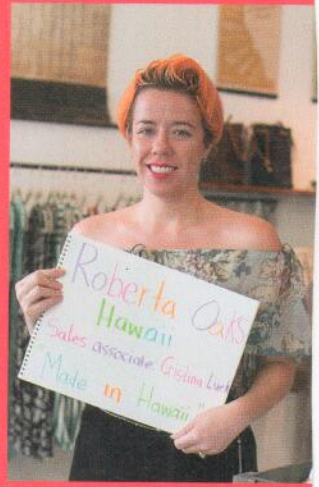 Roberta Oaks
Hawaii
Sales associate Cristina
Made in Hawaii"